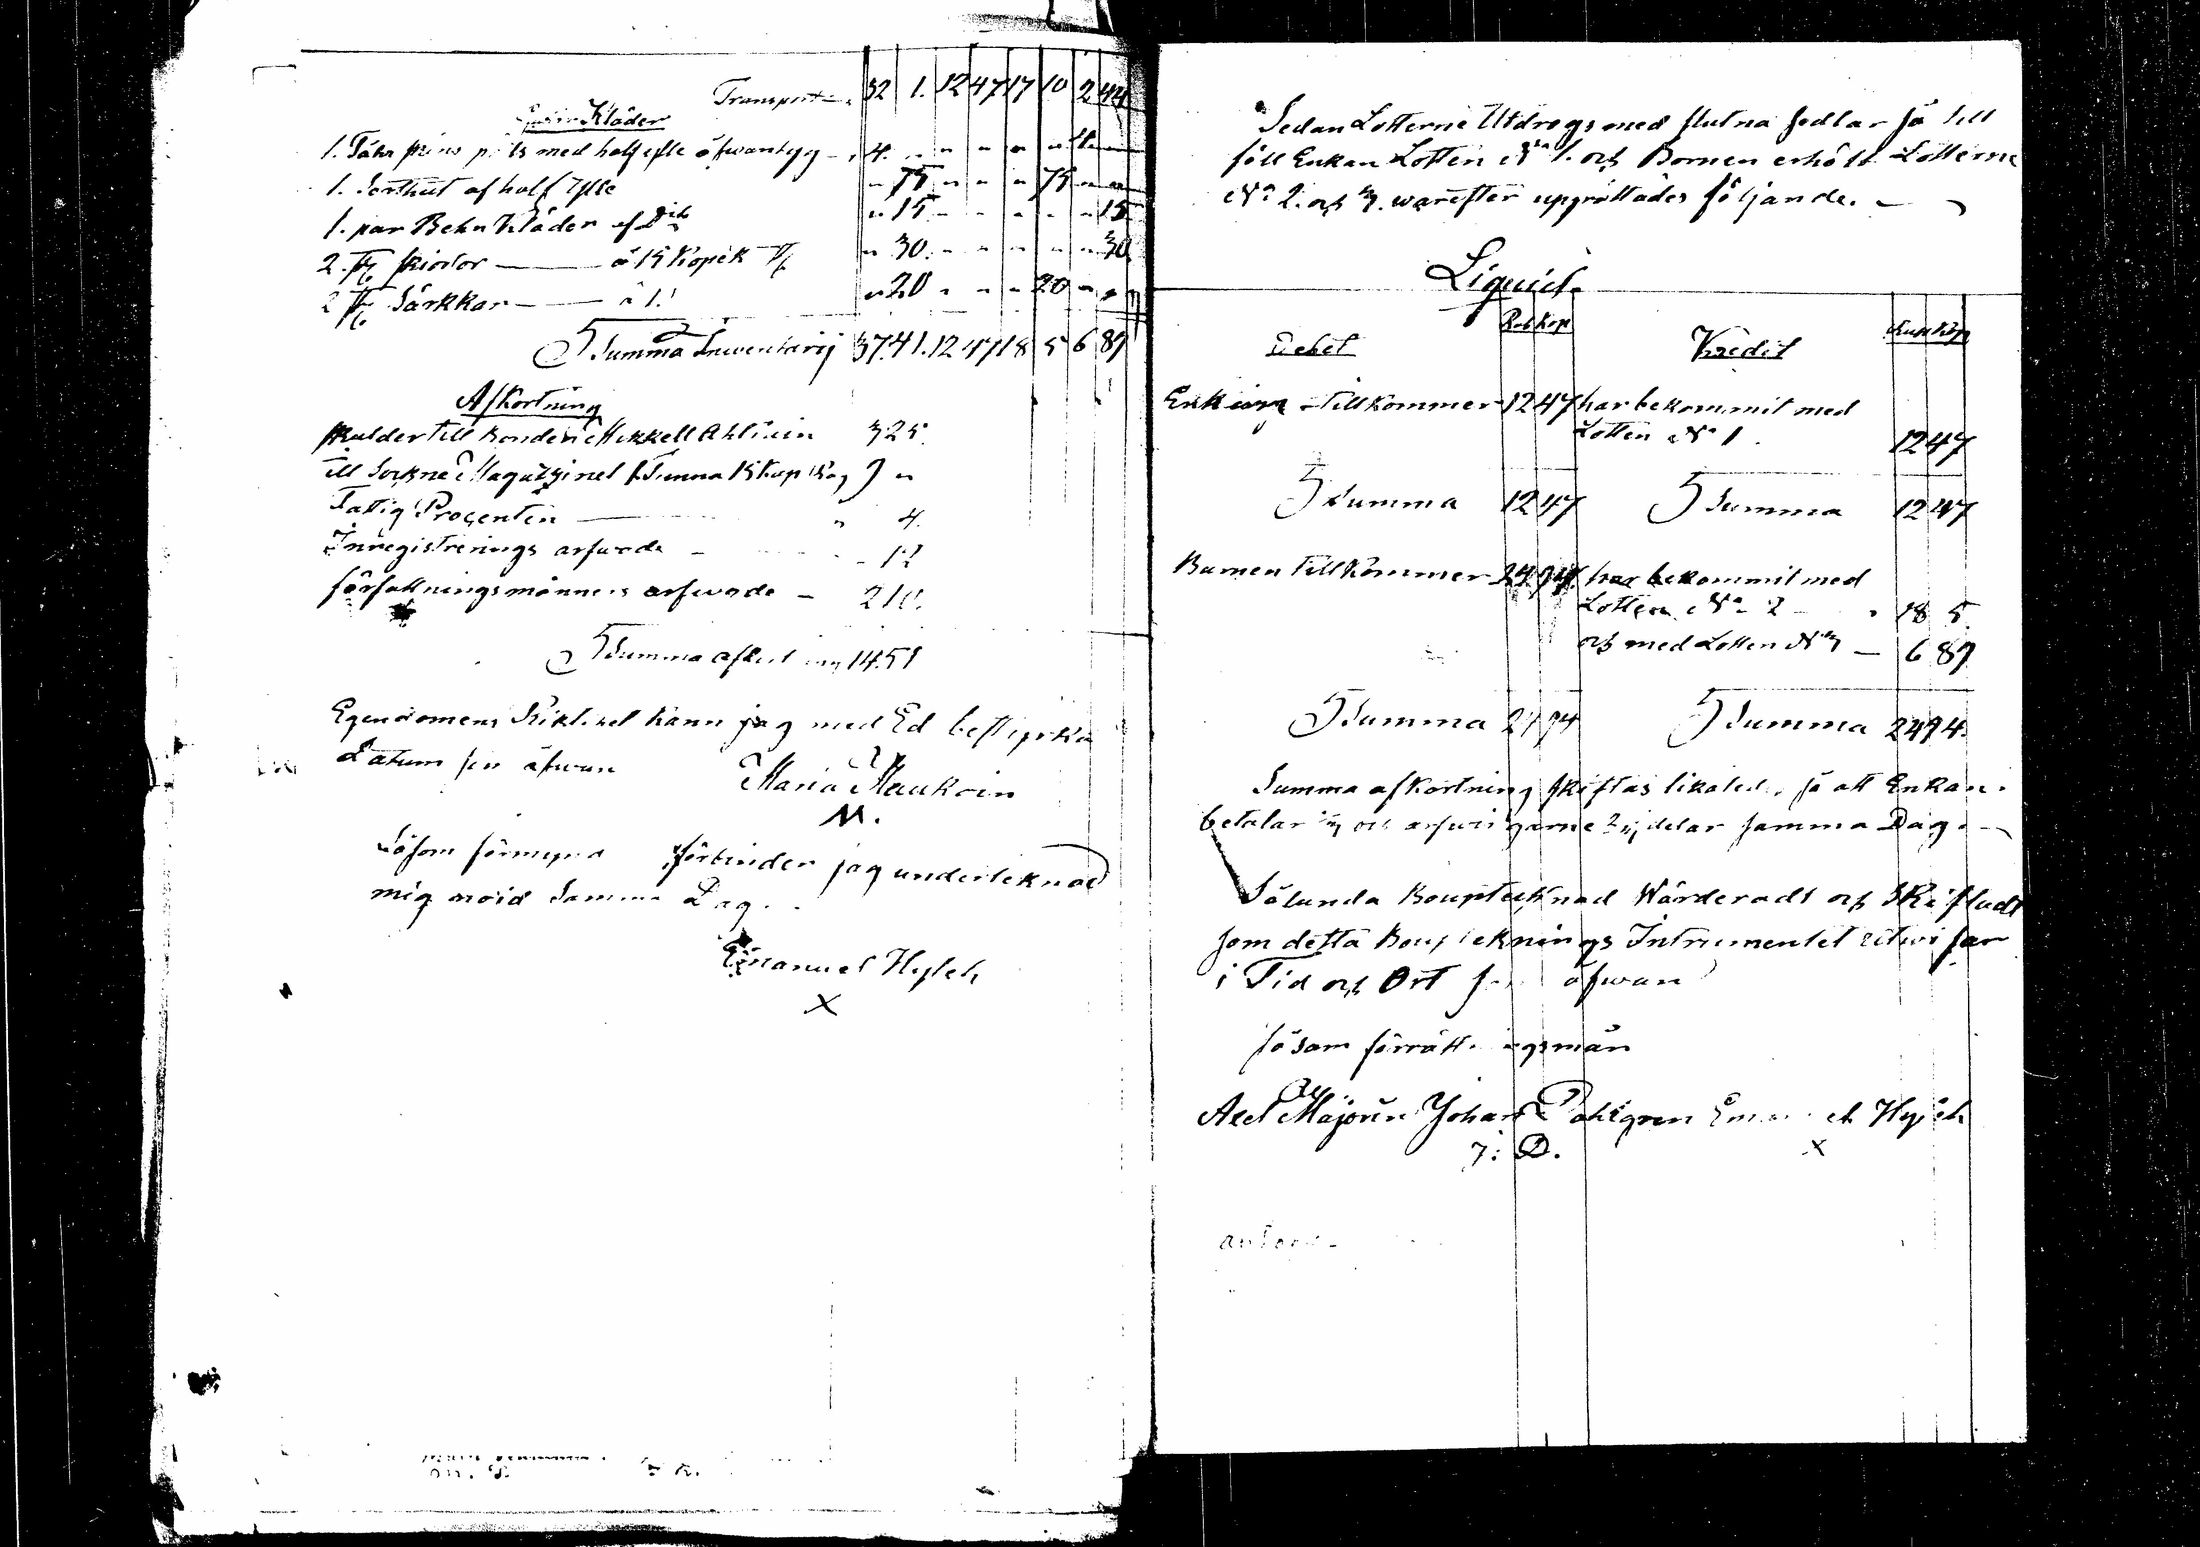 Transport 32 1. 12 47 17 10 2 44
Kläder
1. Fåhr skins med half ylle öfwantyg 4.
1. Sorthut af half Ylle 75 75
1. par Behn Kläder af Dito 15 15
2. st skiortor — á 15 Kopek 30 30
2 st Särkkar — á 1. 20 20
Summa Inwentarij 37 41. 12 47 18 5 6 89
Afkortning
skulder till Bonden Mikkell Ahlsain 3 25
Till Sockne Magazinet 1 Tunna 15 Kap Råg 9
Fattig Procenten — 4.
Inregistrerings arfwode — 12
författningsmännens arfwode — 2 10.
Summa afkortning 14.51
Egendomens Riktihet kann jag med Ed bestyrka
Datum som öfwan
Maria Maukoin
M.
Såsom förmynd förbinder jag underteknad
mig wid Samma Dag.
Emanuel Hyleh
X
Sedan Lotterne Utdrogs med slutna sedlar så till
föll Enkan Lotten No 1. och Barnen erhölt Lotterne
No 2. och 3. warefter upprättades följande. —
Liquid.
Debet Rub Kop Kredit Rub Kop
Enkian tillkommer 12 47 har bekommit med
Lotten No 1. 12 47
Summa 12 47 Summa 12 47
Barnen tillkommer 24 94 har bekommit med
Lotten No 2 — 18 5
och med Lotten No 3 — 6 89
Summa 24 94 Summa 24 94.
Summa afkortning skiftas likaled. så att Enkan.
betalar 1/3 och arfwingarne 2/3 delar samma Dag. —
Sålunda Bouptecknad Wärderadt och Skiftadt
som detta Bouptekningsinstrumentet utwisar
i Tid och Ort som öfwan
såsom förrättningsmän
Axel Majorin Johan Dahlgren Emanuel Hyleh
J: D. X